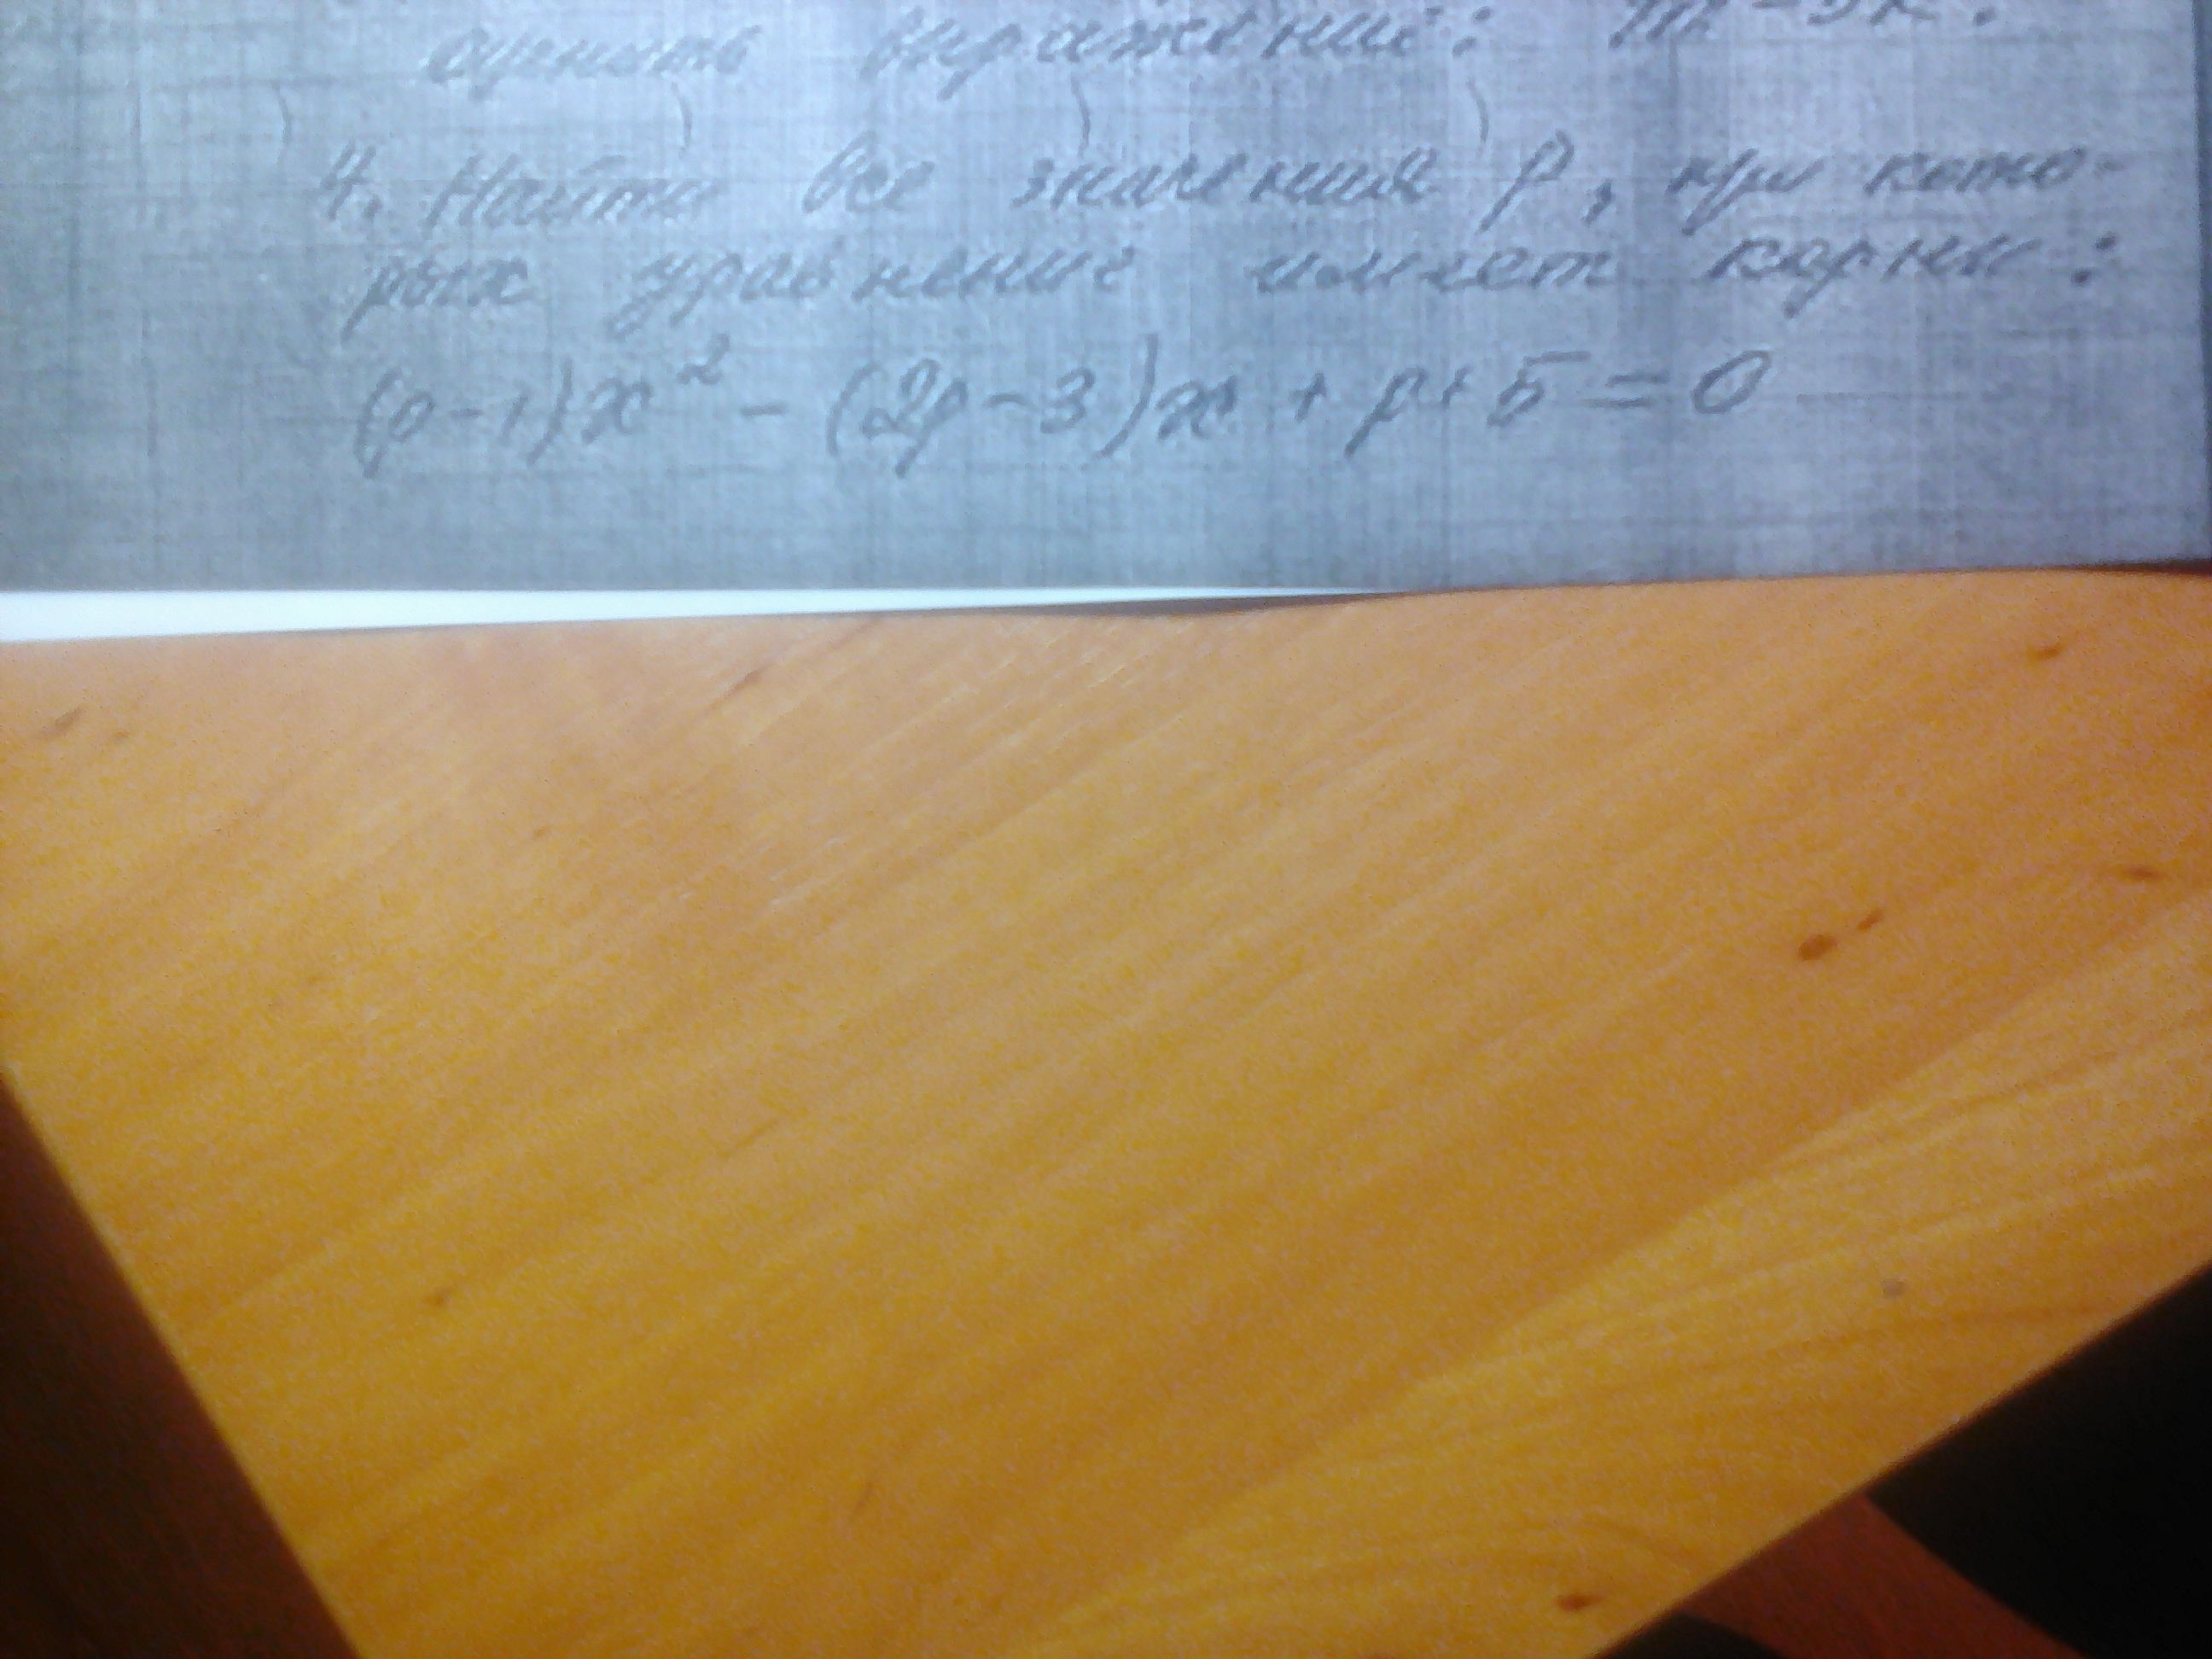 оценить выражение:
4. Найти все значения p, при кото-
рых уравнение имеет корни:
(p-1)x² - (2p-3)x + p+5=0